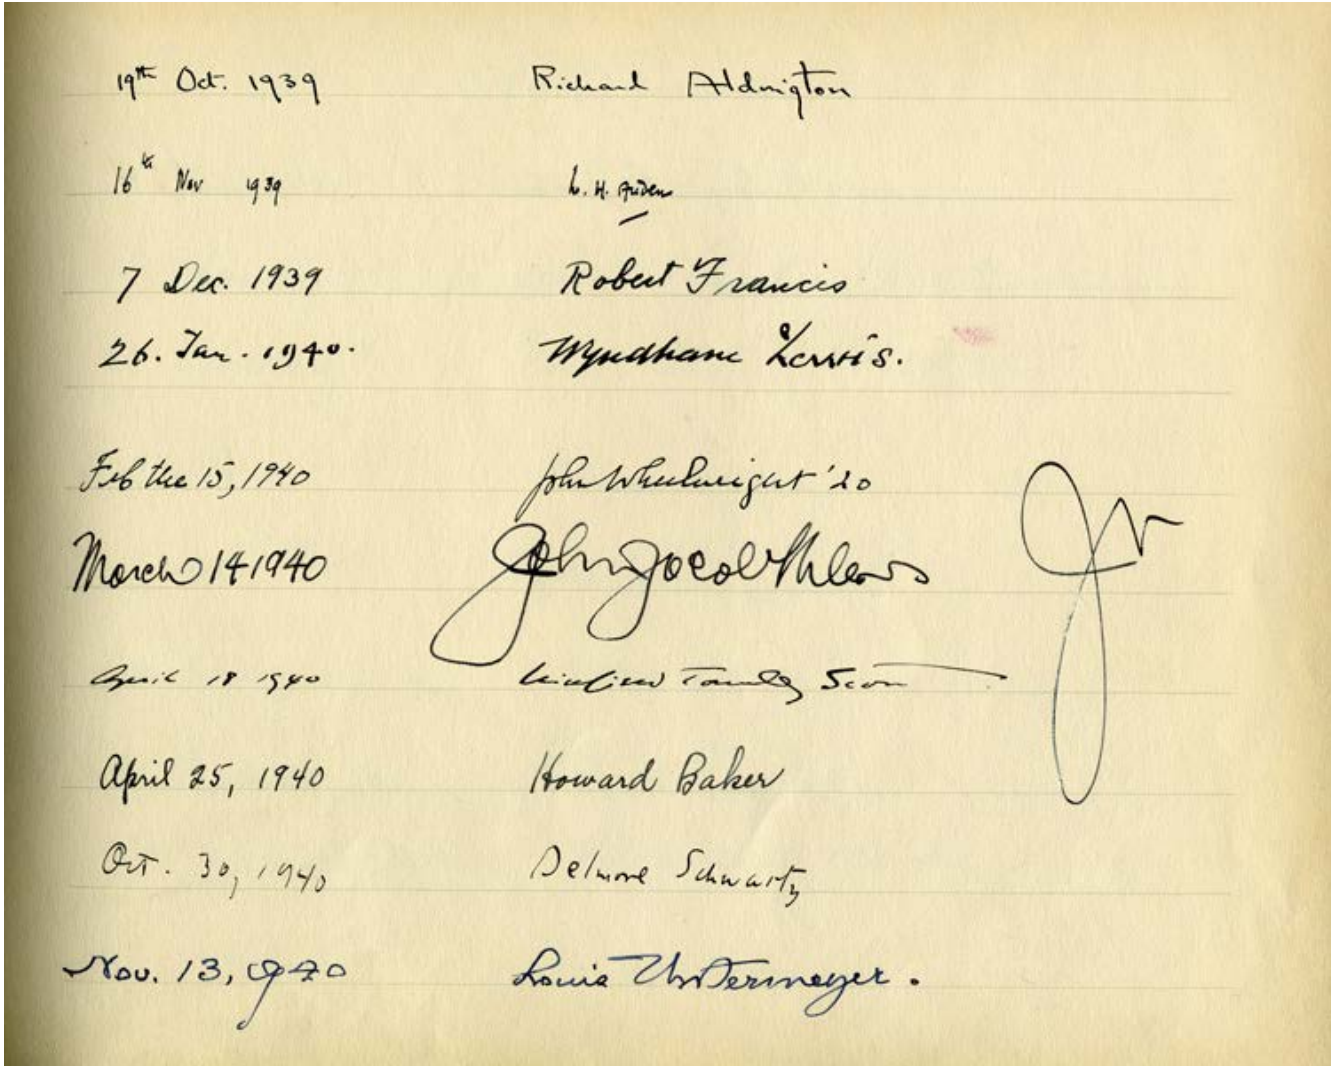 19th Oct. 1939 Richard Aldington
16th Nov 1939 W. H. Auden
7 Dec. 1939 Robert Francis
26. Jan. 1940. Wyndham Lewis.
Feb the 15, 1940 John Wheelwright '20
March 14 1940 John Jacob Niles
April 18 1940 Winfield Townley Scott
April 25, 1940 Howard Baker
Oct. 30, 1940 Delmore Schwartz
Nov. 13, 1940 Louis Untermeyer.